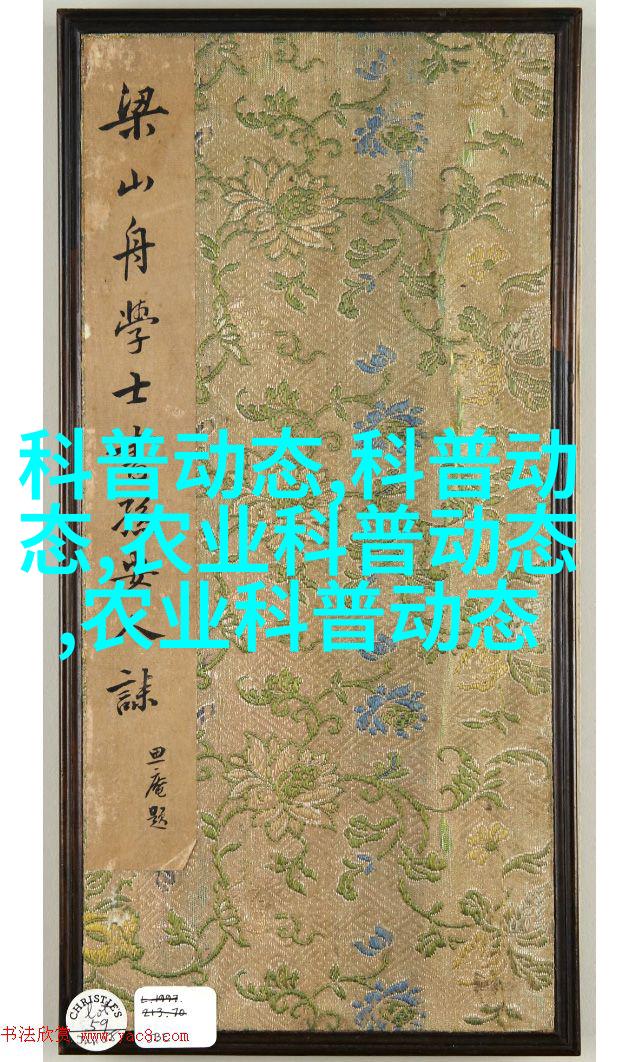 梁山舟學士書孫人誄
庵題
科普动态,科普动
态,农业科普动态
,农业科普动态
CHRISTIE'S
Lot
59
L.1997.
213.70
书法欣赏 www.yac8.com